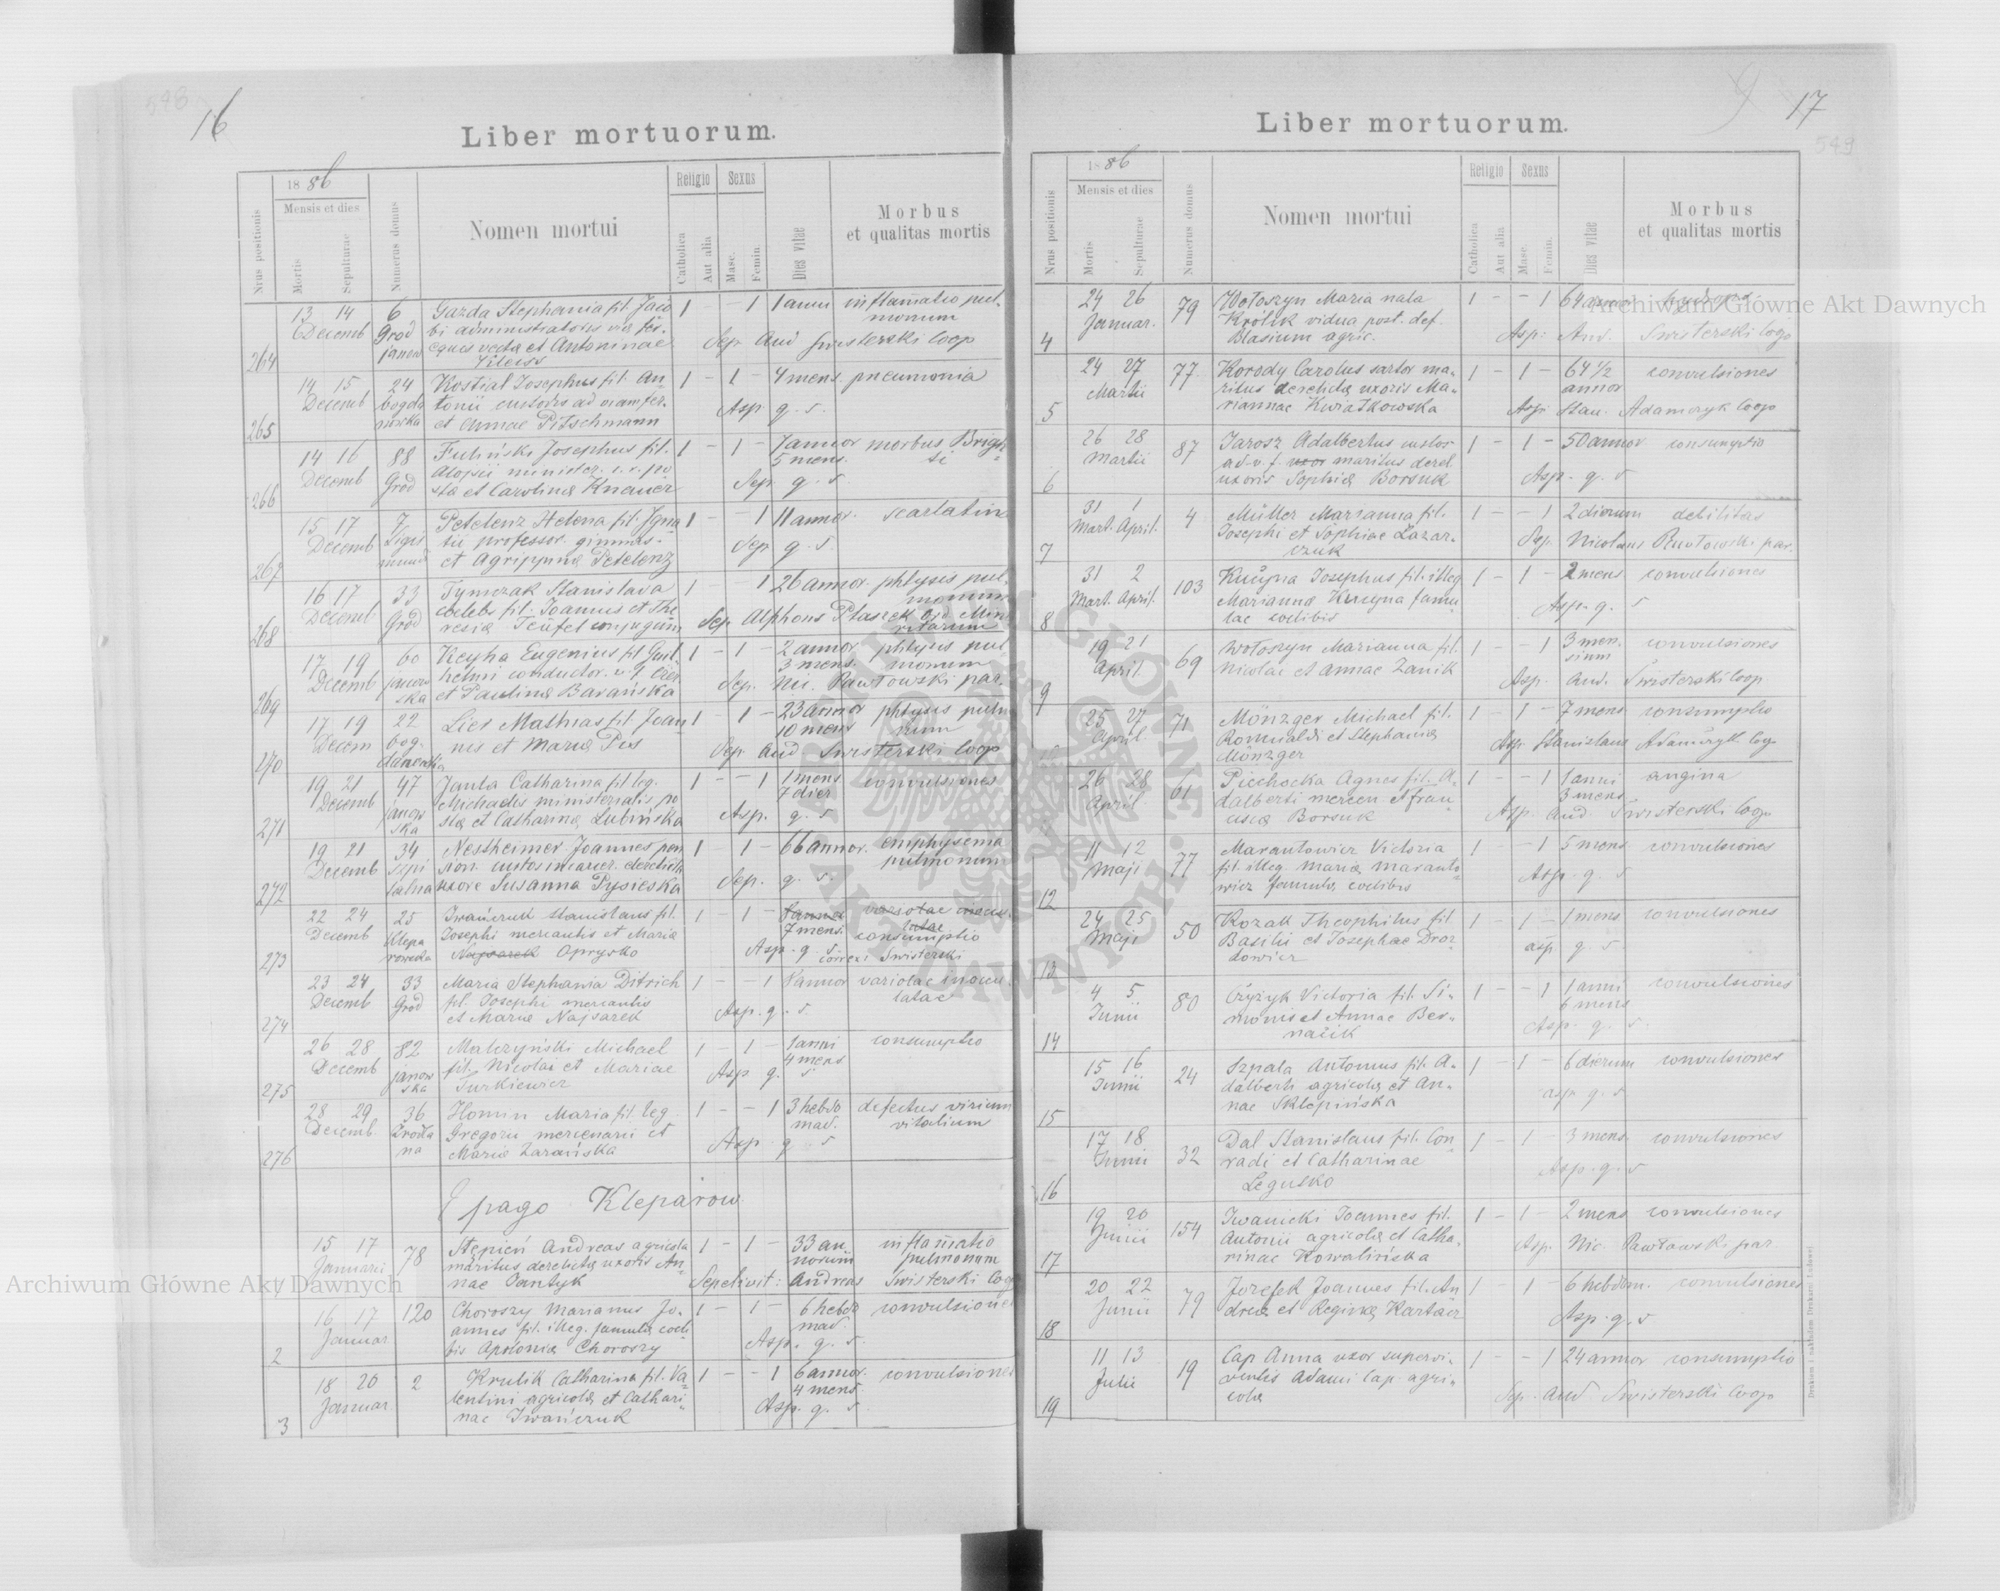 16
Liber mortuorum.
1886
Mensis et dies
Religio
Sexus
Nrus positionis
Mortis
Sepulturae
Numerus domus
Nomen mortui
Catholica
Aut alia
Masc.
Femin.
Dies vitae
Morbus
et qualitas mortis
264 13 14 Decemb 6 Grod janow
Garda Stephania fil. Jaco
bi administratoris vice
et Antoninae
1 - - 1 1 anni inflamatio pul-
monum
Sep. And Swisterski Coop
265 14 15 Decemb 24 bogda nowka
Kostial Josephus fil. An-
tonii custoris ad viam fer.
et Annae Pitschmann
1 - 1 - 4 mens pneumonia
Asp. q. s.
266 14 16 Decemb 88 Grod
Fuhński Josephus fil.
Aloysii minister. c. r. po
sta et Carolina Knauer
1 - 1 - 7 annor 5 mens. morbus Brigh-
ti
Sep. q. s.
267 15 17 Decemb 7 Sigis mund
Petelenz Helena fil. Igna
tii professor. gimnas.
et Agrippina Petelenz
1 - - 1 11 annor. scarlatina
Sep q. s.
268 16 17 Decemb 33 Grod
Tymczak Stanislava
celebs fil. Joannis et The
resia Teüfel conjugum
1 - - 1 26 annor. phtysis pul-
monum
Sep Alphons Ptaszek Ord. Mino
ritarum
269 17 19 Decemb 60 janow ska
Keyha Eugenius fil Guil
helmi conductor. v. f.
et Paulina Barańska
1 - 1 - 2 annor 3 mens. phtysis pul
monum
Sep. Nic. Pawłowski par.
270 17 19 Decem 22 bog- danowka
Lies Mathias fil. Joan
nis et Maria Pis
1 - 1 - 23 annor 10 mens phtysis pulmo
num
Sep. And Swisterski Coop
271 19 21 Decemb 47 janow ska
Janta Catharina fil leg.
Michaelis ministerialis po
sta et Catharina Lubińska
1 - - 1 1 mens 7 dier convulsiones
Asp. q. s.
272 19 21 Decemb 34 szpi talna
Nestheimer Joannes pen
sion. custos incarcer. derelicta
uxore Susanna Pysieska
1 - 1 - 66 annor. emphysema
pulmonum
Sep. q. s.
273 22 24 Decemb 25 Klepa rowska
Iwańczuk Stanislaus fil.
Josephi mercantis et Maria
Najsarek Oprysko
1 - 1 - 7 mens. consumptio
Asp. q. s. correxi Swisterski
274 23 24 Decemb 33 Grod
Maria Stephania Ditrich
fil. Josephi mercantis
et Maria Najsarek
1 - - 1 annor variolae inocu-
latae
Asp. q. s.
275 26 28 Decemb 82 janow ska
Malczyński Michael
fil. Nicolai et Mariae
Turkiewicz
1 - 1 - 1 anni 4 mens consumptio
Asp q. s.
276 28 29 Decemb. 36 Źrodla na
Homin Maria fil. leg.
Gregorii mercenarii et
Maria Zarańska
1 - - 1 3 hebdo mad. defectus virium
vitalium
Asp q s
E pago Kleparow
1 15 17 Januarii 78
Stepień Andreas agricola
maritus derelicta uxoris An-
nae Pantyk
1 - 1 - 33 an- norum inflamatio
pulmonum
Sepelivit: Andreas Swisterski Coop
2 16 17 Januar 120
Choroszy Marianus Jo-
annes fil. illeg. famula coeli
bis Apolonia Choroszy
1 - 1 - 6 hebdo mad. convulsiones
Asp. q. s.
3 18 20 Januar 2
Krulik Catharina fil. Va
lentini agricola et Cathari-
nae Iwańczuk
1 - - 1 6 annor. 4 mens. convulsiones
Asp. q. s.
17
549
Liber mortuorum.
1886
Mensis et dies
Religio
Sexus
Nrus positionis
Mortis
Sepulturae
Numerus domus
Nomen mortui
Catholica
Aut alia
Masc.
Femin.
Dies vitae
Morbus
et qualitas mortis
4 24 26 Januar. 79
Wołoszyn Maria nata
Królik vidua post. def.
Blasium agric.
1 - - 1 64 annor
Asp: And. Swisterski Coop
5 24 27 Martii 77
Korody Carolus sartor ma-
ritus derelicta uxoris Ma-
riannae Kwiatkowska
1 - 1 - 64 1/2 annor convulsiones
Asp Stan. Adamczyk Coop
6 26 28 Martii 87
Jarosz Adalbertus custos
ad v. f. uxor maritus derel.
uxoris Sophia Borsuk
1 - 1 - 50 annor consumptio
Asp. q. s
7 31 1 Mart. April. 4
Müller Marianna fil.
Josephi et Sophiae Łazar-
czuk
1 - - 1 2 dierum debilitas
Sep. Nicolaus Pawłowski par.
8 31 2 Mart. April. 103
Kuczyna Josephus fil. illeg
Marianna Kuczyna famu-
lae coelibis
1 - 1 - 2 mens convulsiones
Asp. q. s
9 19 21 April. 69
Wołoszyn Marianna fil.
Nicolai et Annae Zanik
1 - - 1 3 men- sium convulsiones
Asp. And. Swisterski Coop
25 27 April. 71
Mönzger Michael fil.
Romualdi et Stephania
Mönzger
1 - 1 - 7 mens consumptio
Asp Stanislaus Adamczyk Coop
26 28 April 61
Piechocka Agnes fil. A-
dalberti mercen. et fran-
cisca Borsuk
1 - - 1 1 anni 3 mens angina
Asp. And. Swisterski Coop
12 11 12 Maji 77
Marantowicz Victoria
fil. illeg. Maria Maranto-
wicz famula coelibis
1 - - 1 5 mens convulsiones
Asp. q. s
13 24 25 Maji 50
Kozak Theophilus fil
Basilii et Josephae Droz-
dowicz
1 - 1 - 1 mens. convulsiones
asp. q. s
14 4 5 Junii 80
Czyżyk Victoria fil. Si-
monis et Annae Ber-
nazik
1 - - 1 1 anni 6 mens convulsiones
Asp. q. s.
15 15 16 Junii 24
Szpala Antonius fil. A-
dalberti agricola et An-
nae Sklepińska
1 - 1 - 6 dierum convulsiones
asp q. s
16 17 18 Junii 32
Dal Stanislaus fil. Con-
radi et Catharinae
Legusko
1 - 1 - 3 mens. convulsiones
Asp. q. s
17 19 20 Junii 154
Iwanicki Joannes fil.
Antonii agricola et Catha-
rinae Kowalińska
1 - 1 - 2 mens convulsiones
Asp. Nic. Pawłowski par
18 20 22 Junii 79
Jozefek Joannes fil. An
drea et Regina Kartacz
1 - 1 6 hebdom. convulsiones
Asp. q. s
19 11 13 Julii 19
Cap Anna uxor supervi-
ventis Adami Cap agri-
cola
1 - - 1 24 annor consumptio
Sep. And Swisterski Coop
Archiwum Główne Akt Dawnych
Archiwum Główne Akt Dawnych
ARCHIWUM GŁÓWNE AKT DAWNYCH